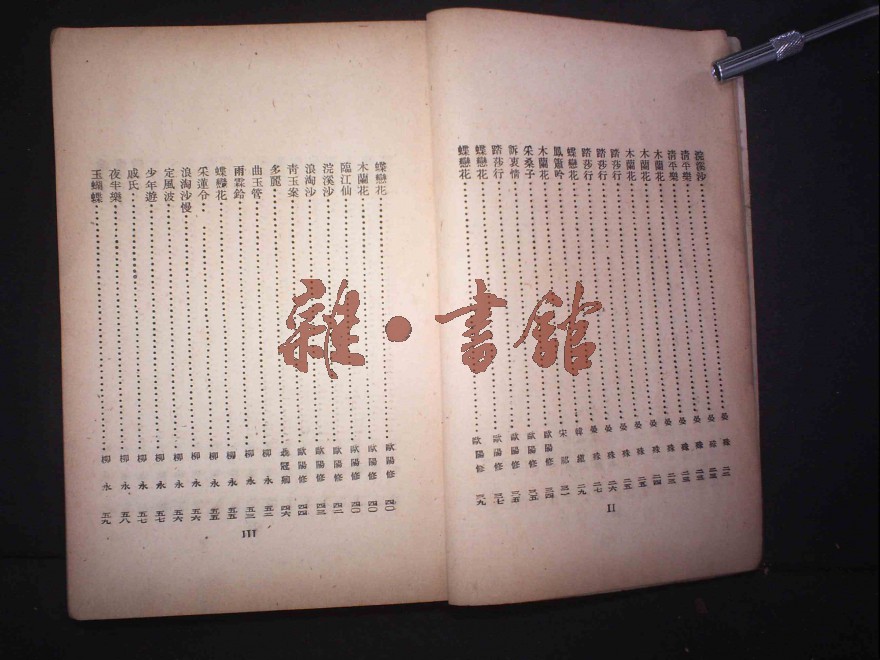 浣溪沙 晏殊 二二
清平樂 晏殊 二三
清平樂 晏殊 二三
木蘭花 晏殊 二四
木蘭花 晏殊 二五
木蘭花 晏殊 二五
踏莎行 晏殊 二六
踏莎行 晏殊 二七
蝶戀花 韓縝 二九
鳳簫吟 宋祁 三一
木蘭花 歐陽修 三四
采桑子 歐陽修 三五
訴衷情 歐陽修 三五
踏莎行 歐陽修 三七
蝶戀花 歐陽修 三九
蝶戀花
II
蝶戀花 歐陽修 四〇
木蘭花 歐陽修 四〇
臨江仙 歐陽修 四〇
浣溪沙 歐陽修 四二
浪淘沙 歐陽修 四三
青玉案 歐陽修 四四
多麗 聶冠卿 四六
曲玉管 柳永 五二
雨霖鈴 柳永 五三
蝶戀花 柳永 五五
采蓮令 柳永 五五
浪淘沙慢 柳永 五六
定風波 柳永 五六
少年遊 柳永 五七
戚氏 柳永 五七
夜半樂 柳永 五八
玉蝴蝶 柳永 五九
III
雜·書館